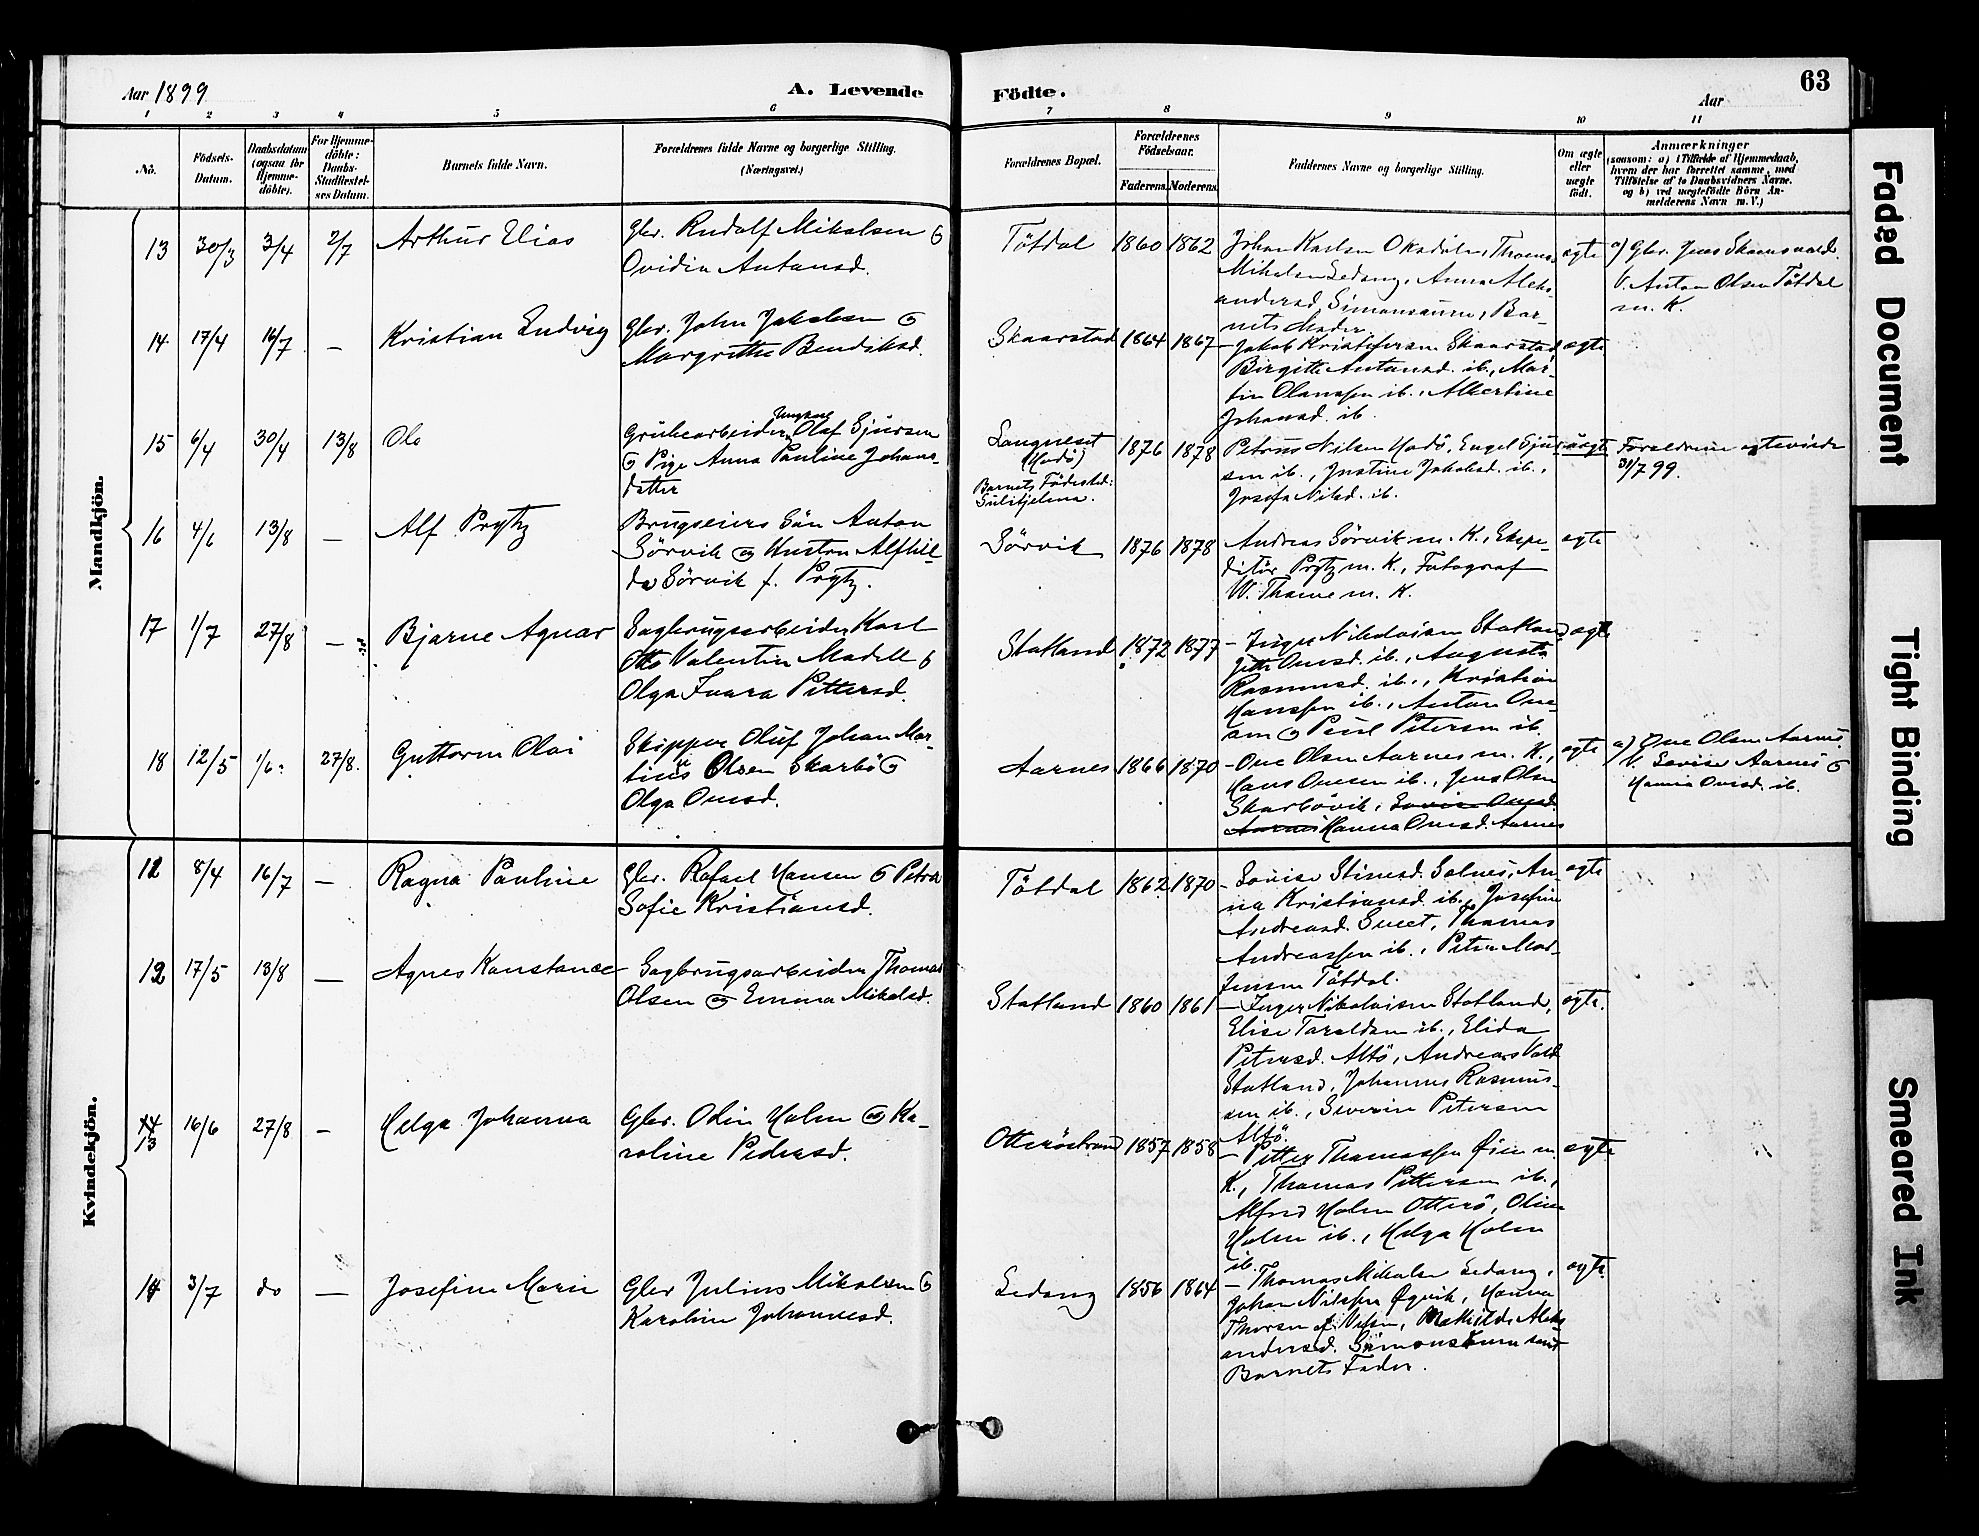 Aar 1899
A. Levende
Födte.
Aar
63
1 2 3 4 5 6 7 8 9 10 11
No.
Födsels-
Datum.
Daabsdatum
(ogsaa for
Hjemme-
döbte).
For Hjemme-
döbte:
Daabs-
Stadfæstel-
ses Datum.
Barnets fulde Navn.
Forældrenes fulde Navne og borgerlige Stilling.
(Næringsvei.)
Forældrenes Bopæl.
Forældrenes
Födselsaar.
Faderens. Moderens.
Faddernes Navne og borgerlige Stilling.
Om ægte
eller
uægte
födt.
Anmærkninger
(saasom: a) i Tilfælde af Hjemmedaab,
hvem der har forrettet samme, med
Tilföielse af to Daabsvidners Navne,
og b) ved uægtefödte Börn An-
melderens Navn m. V.)
Mandkjön.
13 30/3 3/4 2/7 Arthur Elias
Gbr. Rudolf Mikalsen &
Ovidia Antonsd.
Tötdal 1860 1862
Johan Karlsen Oksdölen, Thomas
Mikalsen Sedang, Anna Aleks-
andersd. Simonsaunn, Bar-
nets Moder
ægte
a) Gbr. Jens Skamsvold.
V. Anton Olsen Tötdal
m. K.
14 17/4 16/7 — Kristian Ludvig
Gbr. John Jakobsen &
Margrethe Bendiksd.
Skaarstad 1864 1867
— Jakob Kristofersen Skaarstad
Birgitte Antonsd. ib., Mar-
tin Olaussen ib., Albertine
Johansd. ib.
ægte
15 6/4 30/4 13/8 Ole
Grubearbeider Ungkarl Olaf Sjursen
& Pige Anna Pauline Johans-
datter
Langneset
(Hodö)
Barnets Födested:
Sulitjelma.
1876 1878
Petrus Nilsen Hodö, Engel Sjur-
sen ib., Justine Jakobsd. ib.,
Josefa Nilsd. ib.
uægte
Forældrene egteviede
31/7 99.
16 4/6 13/8 — Alf Prytz
Brugseiers Sön Anton
Sörvik og Hustru Alfhil-
da Sörvik f. Prytz.
Sörvik 1876 1878
Andreas Sörvik m. K., Ekspe-
ditör Prytz m. K., Fotograf
W. Thorne m. K.
ægte
17 1/7 27/8 — Bjarne Agnar
Sagbrugsarbeider Karl
Otto Valentin Modell &
Olga Ivara Pettersd.
Statland 1872 1877
— Inger Nikolaisen Statland
Jette Omsd. ib., Augusta
Rasmusd. ib., Kristian
Hanssen ib., Anton
& Paul Petersen ib.
ægte
18 12/5 1/6 27/8. Guttorm Olai
Skipper Oluf Johan Mar-
tinus Olsen Skarbö &
Olga Onesd.
Aarnes 1866 1870
— One Olsen Aarnes m. K.,
Hans Onesen ib., Jens Olsen
Skarbövik, Lovise Onesd.
Aarnes Hanna Onesd. Aarnes
ægte
a) One Olsen Aarnes.
V. Lovise Aarnes &
Hanna Onesd. ib.
Kvindekjön.
12 8/4 16/7 — Ragna Pauline
Gbr. Rafael Hansen & Petra
Sofie Kristiansd.
Tötdal 1862 1870
— Lovise Stinesd. Solnes, An-
na Kristiansd. ib., Josefine
Andreasd. , Thomas
Andreassen ib., Peter Mar-
Jensen Tötdal.
ægte
12 17/5 13/8 — Agnes Konstanse
— Sagbrugsarbeider Thomas
Olsen og Emma Mikalsd.
Statland 1860 1861
— Inger Nikolaisen Statland,
Elise Taraldsen ib., Elida
Petersd. Altö, Andreas Vold
Statland, Johannes Rasmus-
sen ib., Severin Petersen
Altö.
ægte.
13 16/6 27/8 — Helga Johanna
Gbr. Odin Holm og Ka-
roline Pedersd.
Otteröstrand 1857 1858
— Petter Thomassen Öien m.
K., Thomas Pettersen ib.,
Alfred Holm Otterö, Oline
Holm ib., Helga Holm
ib.
ægte
14 3/7 do — Josefine Marie
Gbr Julius Mikalsen &
Karoline Johannesd.
Sedang 1856 1864
— Thomas Mikalsen Sedang,
Johan Nilssen Øysvik, Hanna
Thorsen f. , Mathilde Aleks-
andersd. Simonsaunn samt
Barnets Fader.
ægte.
Faded Document
Tight Binding
Smeared Ink